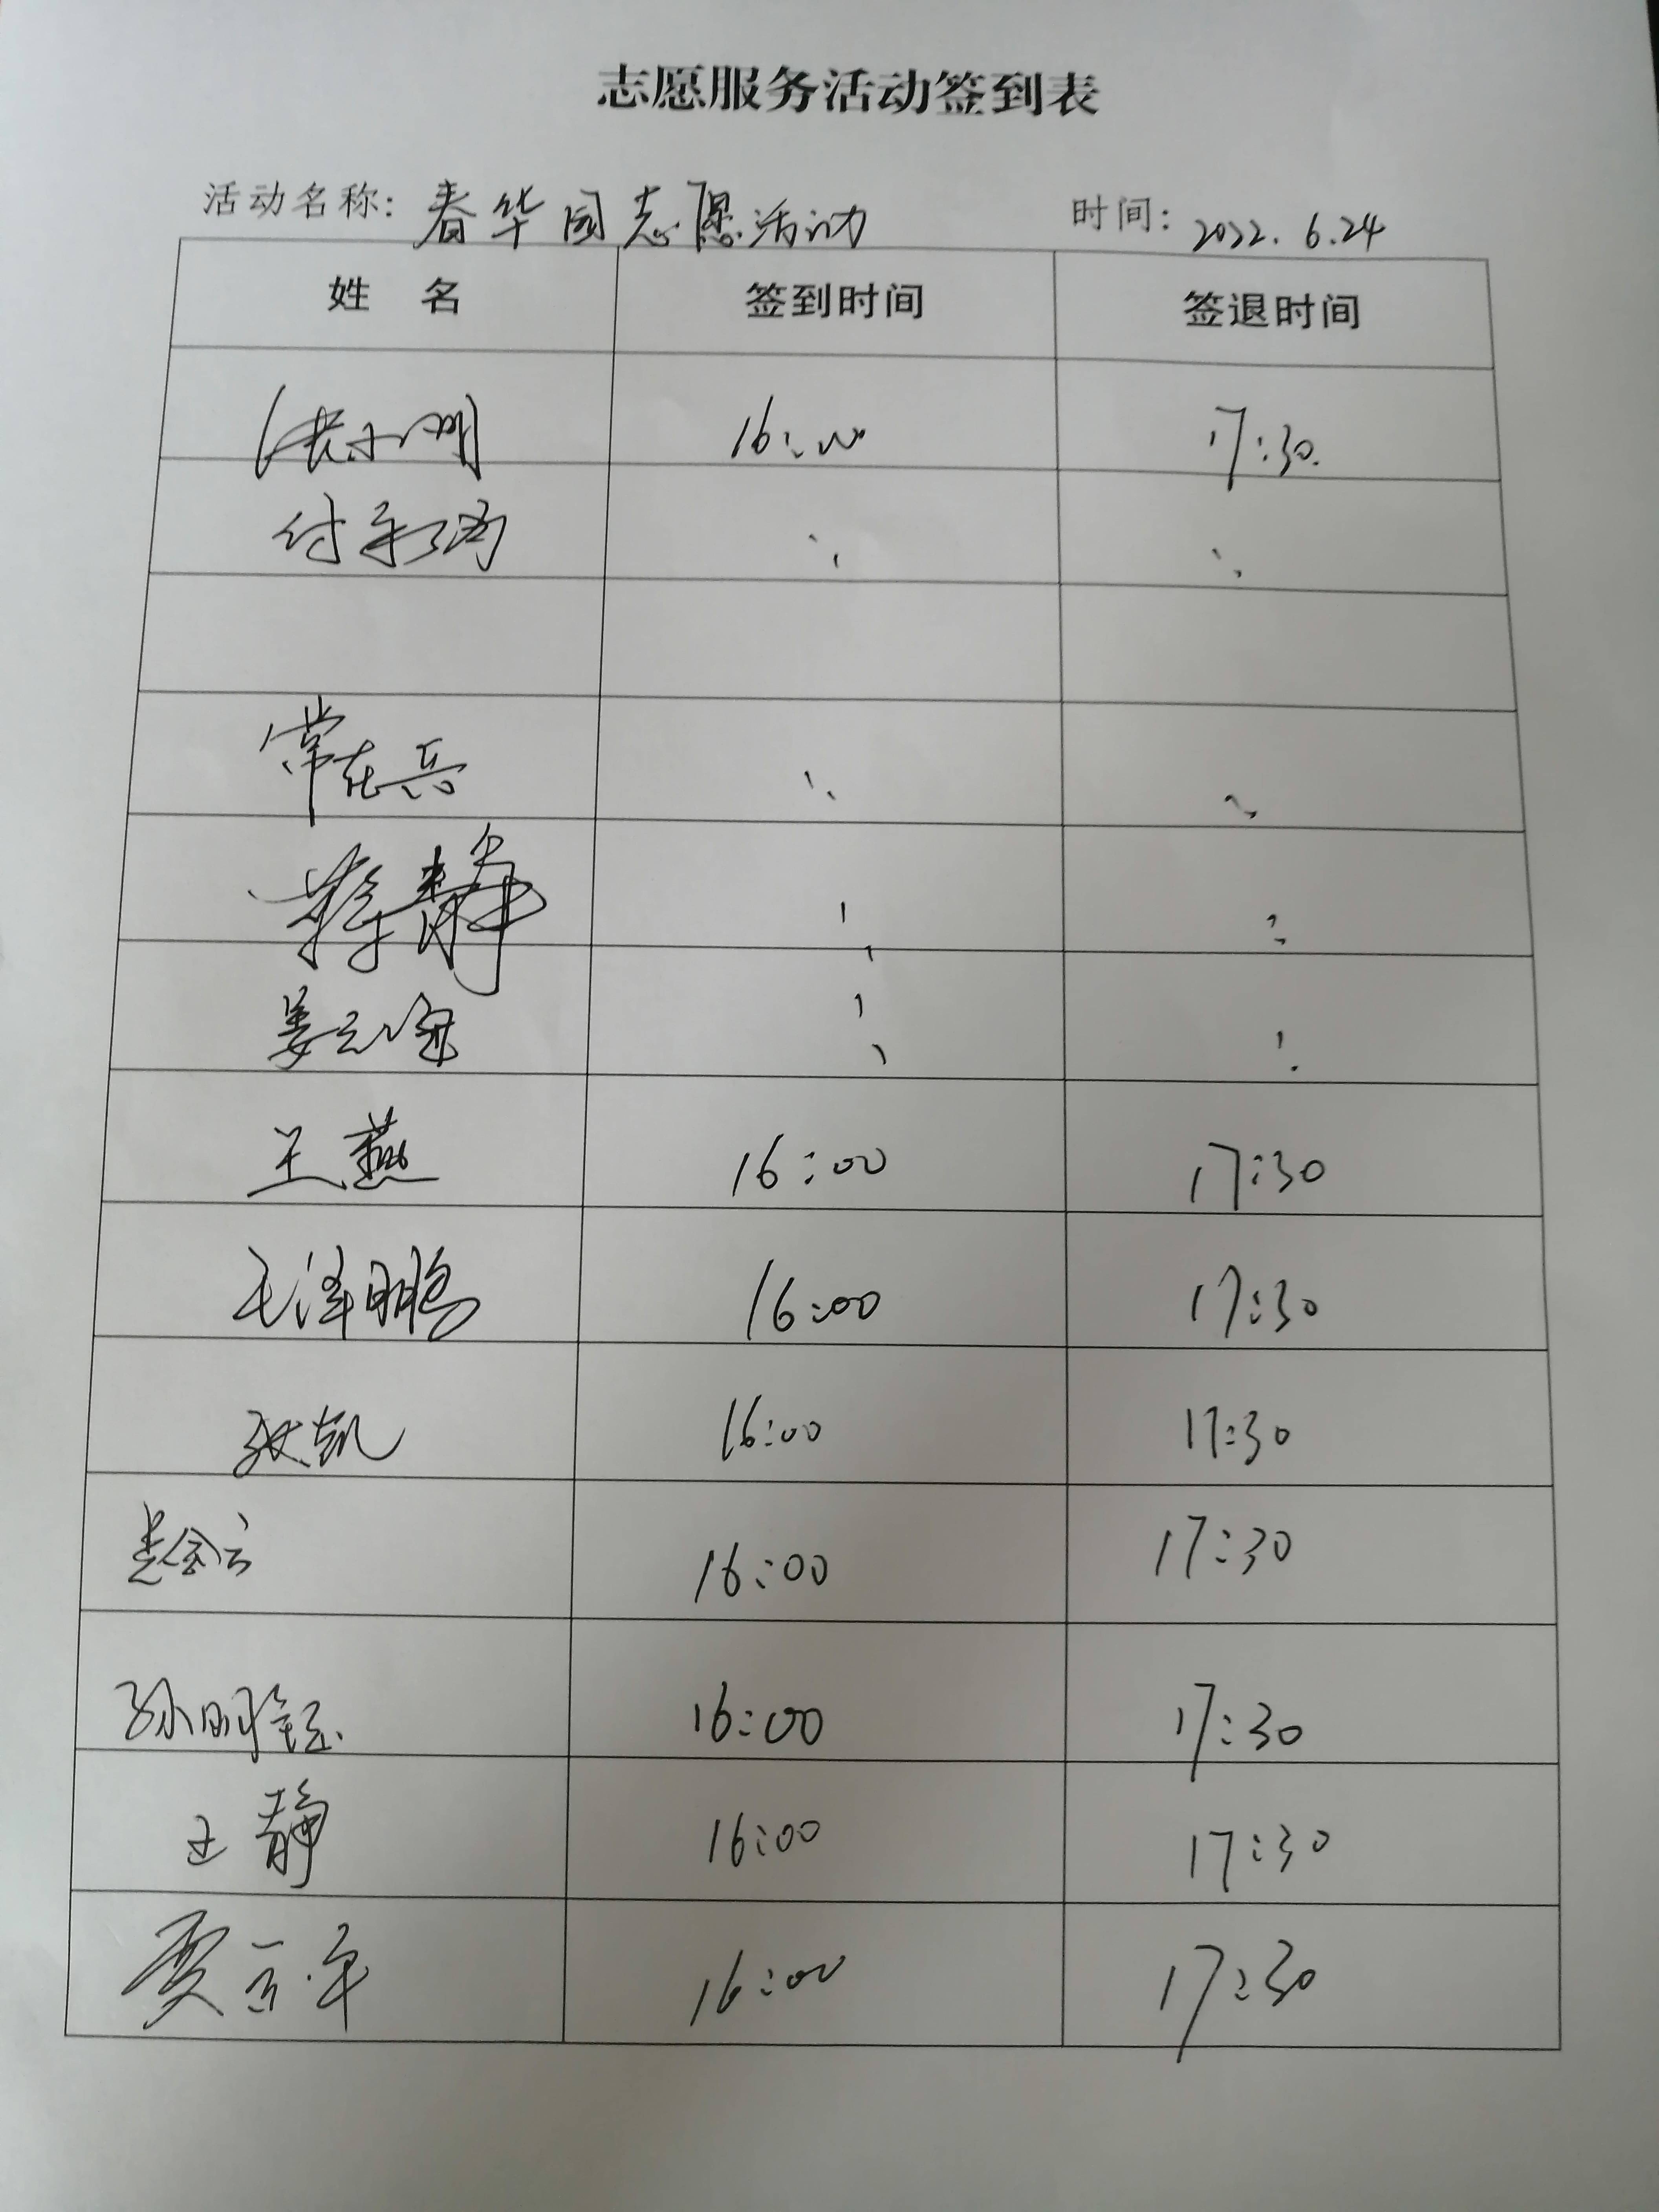 志愿服务活动签到表
活动名称: 春华园志愿活动 时间: 2022.6.24
姓 名 签到时间 签退时间
16:00 17:30.
付
常在兵
静
姜
王燕 16:00 17:30
毛泽鹏 16:00 17:30
张凯 16:00 17:30
16:00 17:30
孙明 16:00 17:30
王静 16:00 17:30
贾 16:00 17:30